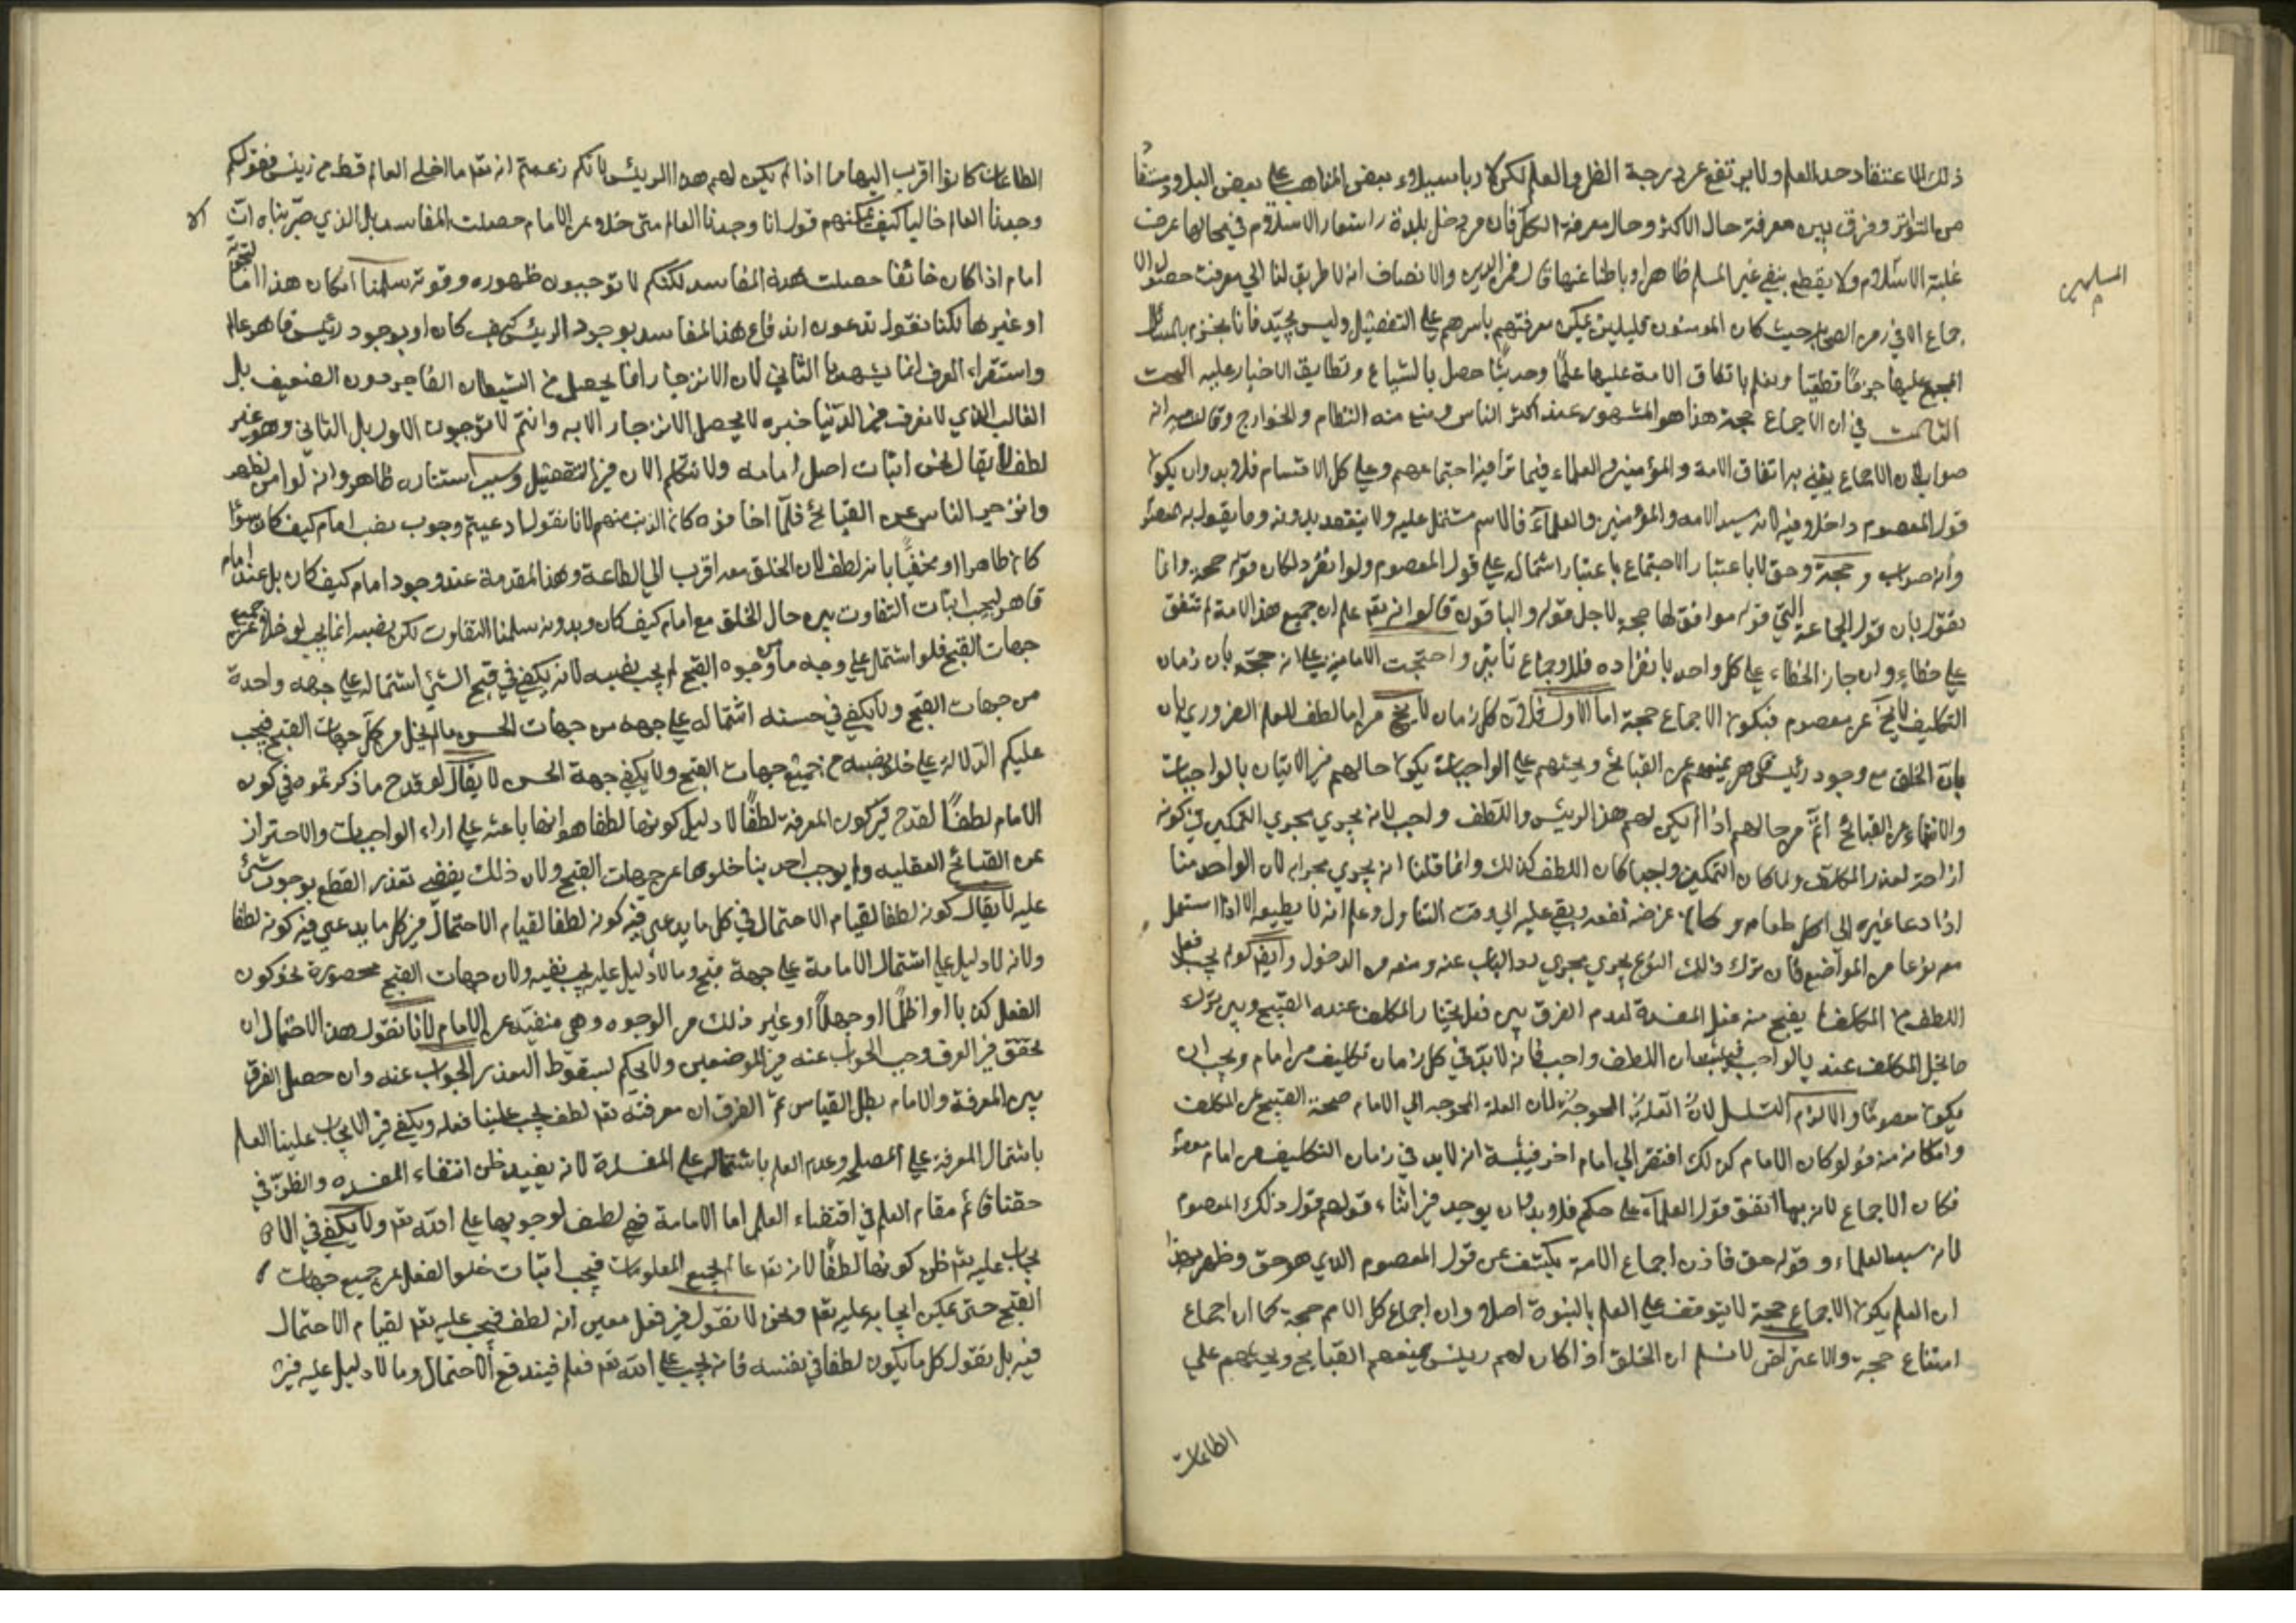 ذلك الاعتقاد حد العلم ولا يرتفع عن درجة الظن والعلم لكن لا ريب استيلاء بعض المذاهب على بعض البلاد
من التواتر وفرق بين معرفة حال الاكثر وحال معرفة الكل فان من دخل بلدة شعار الاسلام في محالها عرف
غلبة الاسلام ولا يقطع بنفي غير المسلم ظاهرا وباطنا عنها والانصاف انه لا طريق لنا الي معرفة حصول الا
المسلمين
جماع الا في زمن الصحابه حيث كان المومنون قليلين يمكن معرفتهم باسرهم على التفصيل وليس بجيد فانا نجزم بالمسائل
المجمع عليها جزما قطعيا ونعلم باتفاق الامة عليها علما حصل بالتسامع وتطابق الاخبار عليه البحث
الثالث في ان الاجماع حجة هذا هو المشهور عند اكثر الناس ومنع منه النظام والخوارج
صواب لان الاجماع يعني به اتفاق الامة والمؤمنين والعلماء فيما اجتماعهم وعلى كل الاقسام فلا بد وان يكون
قول المعصوم داخلا فيه لانه سيد الامه والمؤمنين والعلماء فالاسم مشتمل عليه ولا ينعقد بدونه وما يقوله المعصوم
وانه صواب وحجة وحق لا باعتبار الاجتماع باعتبار اشتماله على قول المعصوم ولو انفرد لكان قوله حجة وانما
نقول بان قول الجماعة التي قوله موافق لها حجة لاجل قوله والباقون قالوا انه تعم علم ان جميع هذه الامة لا تتفق
على خطاء وان جاز الخطاء على كل واحد بانفراده فللاجماع تاثير واحتجت الامامية على انه حجة بان زمان
التكليف لا يخ عن معصوم فيكون الاجماع حجة اما الاول فلان كل زمان لا يخ من امام لطف للعلم الضروري بان
بان الخلق مع وجود رئيس قاهر يمنعهم عن القبائح ويحثهم على الواجبات يكون حالهم في الاتيان بالواجبات
والانتهاء عن القبائح اتم من حالهم اذا لم يكن لهم هذا الرئيس واللطف واجب لانه يجري مجري التمكين في كونه
ازاحة لعذر المكلف ولما كان التمكين واجبا كان اللطف كذلك وانما قلنا انه يجري مجراه لان الواحد منا
اذا دعا غيره الي اكل طعامه وكان غرضه نفعه وبقي عليه الي وقت التناول وعلم انه لا يطيعه الا اذا استعمل
معه نوعا من التواضع فان ترك ذلك النوع يجري مجري رد الباب عنه ومنعه من الدخول وايض لو لم يجب فعل
اللطف من المكلف لا يقبح منه فعل المفسدة لعدم الفرق بين فعل يختار المكلف عنده القبيح وبين ترك
ما يخل المكلف عنده بالواجب فثبت ان اللطف واجب فانه لا بد في كل زمان تكليف من امام ويجب ان
يكون معصوما والا لزم التسلسل لان العلة المحوجة لان العلة المحوجه الي الامام صحة القبيح عن المكلف
وامكانه منه فلو كان الامام كذلك افتقر الي امام اخر فيثبت انه لا بد في زمان التكليف من امام معصوم
فكان الاجماع لانه مهما اتفق قول العلماء على حكم فلا بد وان يوجد في اثناء قولهم قول ذلك المعصوم
لانه سيد العلماء وقوله حق فاذن اجماع الامة يكشف عن قول المعصوم الذي هو حق وظهر بهذا
ان العلم بكون الاجماع حجة لا يتوقف على العلم بالنبوة اصلا وان اجماع كل الامم حجة كما ان اجماع
امتنا حجة والاعتراض لا نسلم ان الخلق اذا كان لهم رئيس يمنعهم القبايح ويحثهم علي
الطاعات
الطاعات كانوا اقرب اليها مما اذا لم يكن لهم هذا الرئيس لانكم زعمتم انه تعم ما اخلى العالم قط من رئيس فقولكم
وجدنا العالم خاليا كيف يمكنهم قول انا وجدنا العالم متى خلا عن الامام حصلت المفاسد بل الذي جربناه ان
الا
امام اذا كان خائفا حصلت هذه المفاسد لكنكم لا توجبون ظهوره وقوته سلمنا امكان هذا
او غيرها لكنا نقول تدعون اندفاع هذا المفاسد بوجود الرئيس كيف كان او بوجود رئيس قاهر عالم
واستقراء العرف انما يشهد بالثاني لان الانزجار انما يحصل من السلطان القاهر دون الضعيف بل
الغائب الذي لا نعرف في الدنيا خبره لا يحصل الانزجار الا به وانتم لا توجبون الاول بل الثاني وهو غير
لطف لا يقال لخن اثبات اصل امامه ولا نتكلم الان في التفصيل وسبب استتاره ظاهر وانه لو امن لظهر
وانزجر الناس عن القبائح فلما اخافوه كان الذنب منهم لانا نقول ادعيتم وجوب نصب امام كيف كان سواء
كان ظاهرا او مخفيا بانه لطف لان الخلق معه اقرب الي الطاعة وهذا المقدمة عند وجود امام كيف كان بل عند امام
قاهر ليجب اثبات التفاوت بين حال الخلق مع امام كيف كان وبدونه سلمنا التفاوت لكن نصبه انما يجب لو خلا عن جميع
جهات القبح فلو اشتمل على وجه ما من وجوه القبح لم يجب نصبه لانه يكفي في قبح الشئ اشتماله على جهه واحدة
من جهات القبح ولا يكفي في حسنه اشتماله على جهه من جهات الحسن ما لم يخل عن كل جهات القبح فيجب
عليكم الدلالة على خلو نصبه من جميع جهات القبح ولا يكفي جهة الحسن لا يقال لو قدح ما ذكرتموه في كون
الامام لطفا لقدح في كون المعرفة لطفا لا دليل كونها لطفا هو انها باعثه على اداء الواجبات والاحتراز
عن القبائح العقليه ولم يوجب احد بنا خلوها عن جهات القبح ولان ذلك يفضي تعذر القطع بوجوب شئ
عليه لا يقال كونه لطفا لقيام الاحتمال في كل ما يدعى فيه كونه لطفا لقيام الاحتمال في كل ما يدعي فيه كونه لطفا
ولانه لا دليل على اشتمال الامامة على جهة قبح وما لا دليل عليه يجب نفيه ولان جهات القبح محصورة نحو كون
الفعل كذبا او ظلما او جهلا او غير ذلك من الوجوه وهي منفيه عن الامام لانا نقول هذا الاحتمال ان
تحقق في العرف وجب الجواب عنه في الموضعين ولا يحكم بسقوط البعذر الجواب عنه وان حصل الفرق
بين المعرفة والامام بطل القياس ثم الفرق ان معرفته تعم لطف يجب علينا فعله ويكفي في الايجاب علينا العلم
باشتمال المعرفة على المصلحه وعدم العلم باشتماله على المفسدة لانه يفيد ظن انتفاء المفسده والظن في
حقنا قائم مقام العلم في اقتضاء العلم اما الامامة فهي لطف لوجوبها على الله تعم ولا يكفي في الا
يجاب عليه تعم ظن كونها لطفا لانه تعم عالم بجميع المعلومات فيجب اثبات خلو الفعل عن جميع جهات
القبح حتى يمكن ايجابه عليه تعم ونحن لا نقول في فعل معين انه لطف فيجب عليه تعم لقيام الاحتمال
فيه بل نقول كل ما يكون لطفا في نفسه فانه يجب على الله تعم فعله فيندفع الاحتمال وما لا دليل عليه في